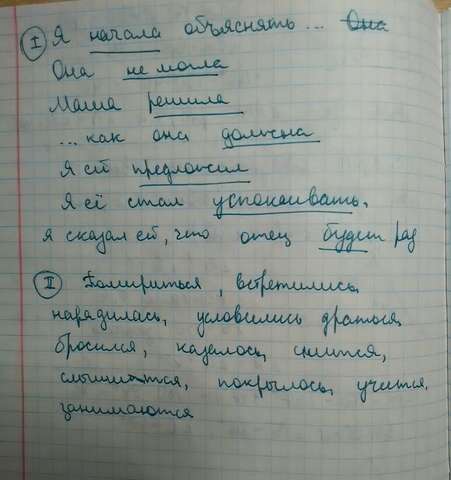 I Я начала объяснять... Она
Она не могла
Маша решила
...как она должна
Я ей предложил
Я её стал успокаивать.
Я сказал ей, что отец будет рад
II Помириться, встретились
нарядилась, условились драться
бросился, казалось, снится,
слышится, покрылось, учится,
занимаются